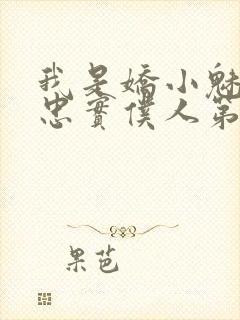 我是嬌小魅
忠實僕人第
果芭